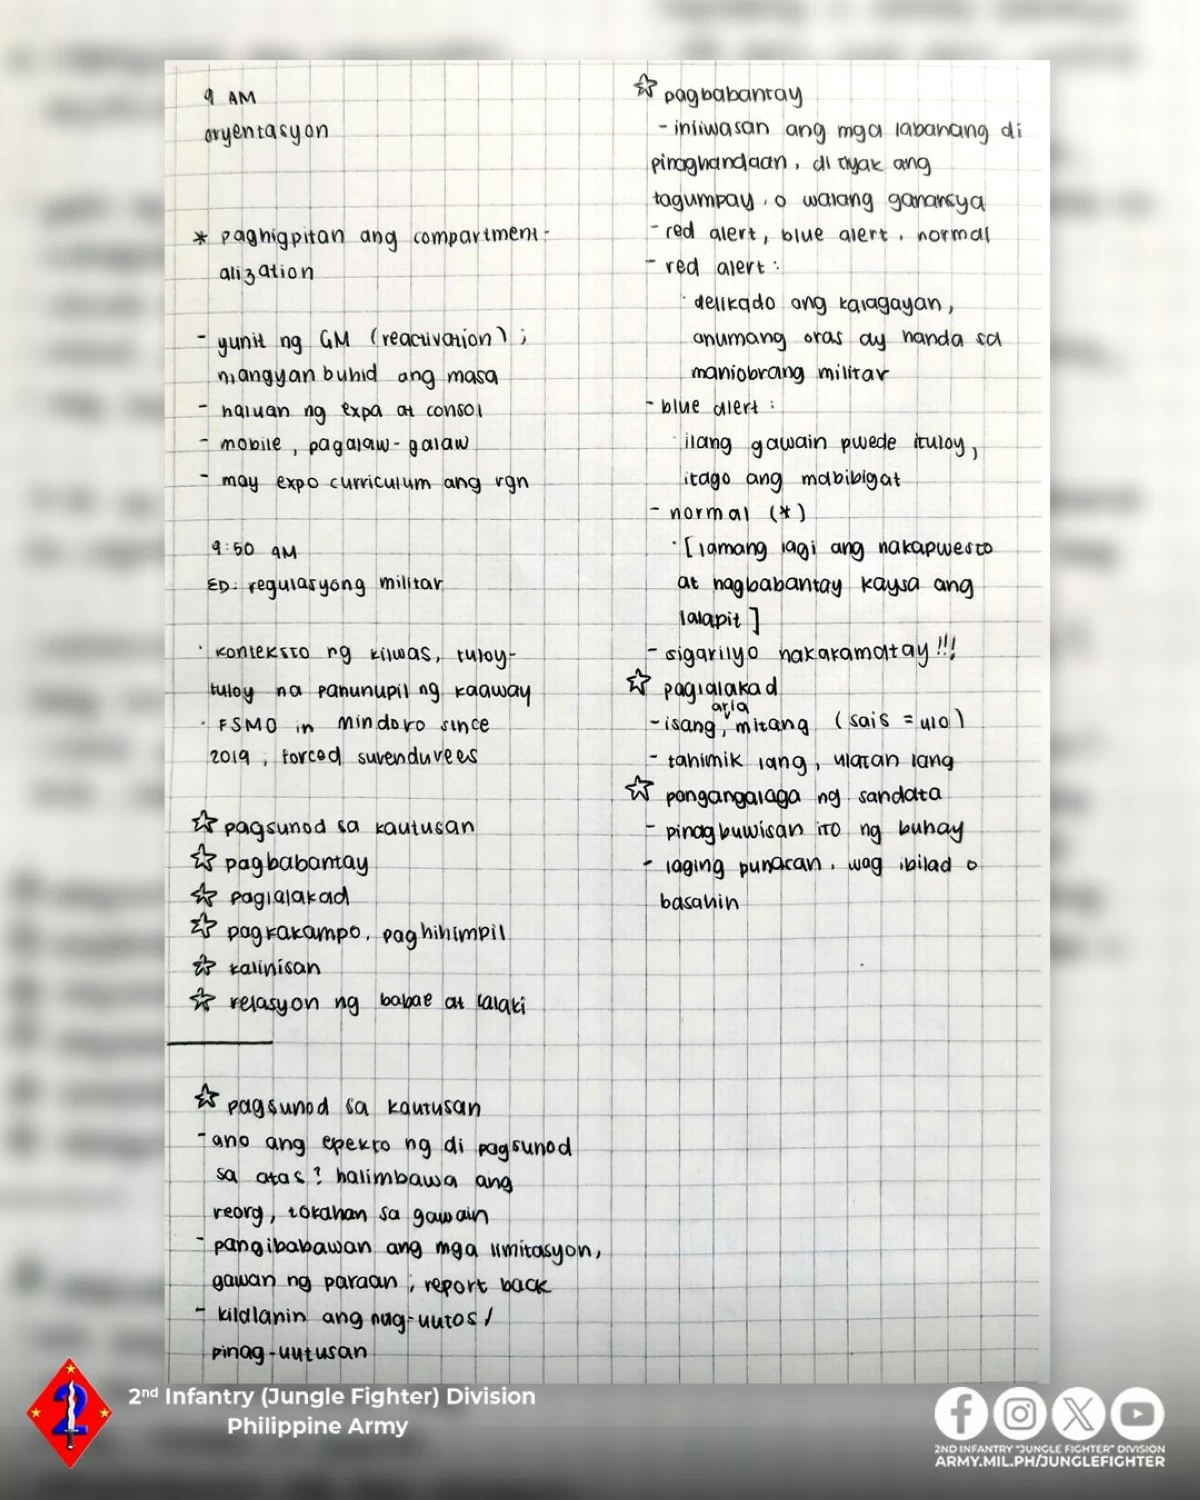 9 AM
oryentasyon
* paghigpitan ang compartment-
alization
- yunit ng GM (reactivation) ;
mangyan buhid ang masa
- haluan ng expa at consol
- mobile, pagalaw-galaw
- may expo curriculum ang rgn
9:50 AM
ED: regulasyong militar
· konteksto ng kilwas, tuloy-
tuloy na panunupil ng kaaway
· FSMO in Mindoro since
2019 ; forced surenduvees
☆ pagsunod sa kautusan
☆ pagbabantay
☆ paglalakad
☆ pagkakampo, paghihimpil
☆ kalinisan
☆ relasyon ng babae at lalaki
☆ pagsunod sa kautusan
- ano ang epekto ng di pagsunod
sa atas? halimbawa ang
reorg, tokahan sa gawain
- pangibabawan ang mga limitasyon,
gawan ng paraan ; report back
- kilalanin ang nag-uutos /
pinag-uutusan
☆ pagbabantay
- iniiwasan ang mga labanang di
pinaghandaan, di tiyak ang
tagumpay, o walang ganansya
- red alert, blue alert, normal
- red alert :
· delikado ang kalagayan,
anumang oras ay handa sa
maniobrang militar
- blue alert :
· ilang gawain pwede ituloy,
itago ang mabibigat
- normal (*)
· [lamang lagi ang nakapwesto
at nagbabantay kaysa ang
lalapit]
- sigarilyo nakakamatay !!!
☆ paglalakad
- isang aria, mitang (sais = ulo)
- tahimik lang, ulatan lang
☆ pangangalaga ng sandata
- pinagbuwisan ito ng buhay
- laging punasan, wag ibilad o
basahin
2nd Infantry (Jungle Fighter) Division
Philippine Army
2ND INFANTRY "JUNGLE FIGHTER" DIVISION
ARMY.MIL.PH/JUNGLEFIGHTER